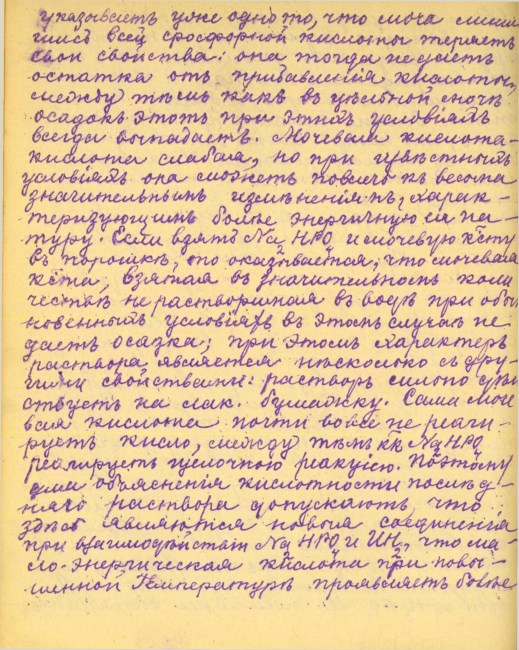 указываетъ уже одно то, что моча лиши
шись всей фосфорной кислоты теряетъ
свои свойства: она тогда не даетъ
остатка отъ прибавленія кислоты,
между тѣмъ какъ въ цѣльной мочѣ
осадокъ этотъ при этихъ условіяхъ
всегда выпадаетъ. Мочевая кислота-
кислота слабая, но при извѣстныхъ
условіяхъ она можетъ повлечь къ весьма
значительнымъ измѣненіямъ, харак-
теризующимъ болѣе энергичную ея на-
туру. Если взять Na₂HPO₄ и мочевую к-ту
въ порошкѣ, то оказывается, что мочевая
к-та, взятая въ значительномъ коли
чествѣ не растворимая въ водѣ при обы
новенныхъ условіяхъ въ этомъ случаѣ не
даетъ осадка; при этомъ характеръ
раствора является нѣсколько съ дру-
гими свойствами: растворъ сильно дѣй
ствуетъ на лак. бумажку. Сама моче
вая кислота почти вовсе не реаги-
руетъ кисло, между тѣмъ кк Na₂HPO₄
реагируетъ щелочною реакціею. Поэтому
для объясненія кислотности послѣд-
няго раствора допускаютъ, что
здѣсь являются новыя соединенія
при взаимодѣйствіи Na₂HPO₄ и , что ма-
ло-энергическая кислота при повы-
шенной температурѣ проявляетъ болѣе